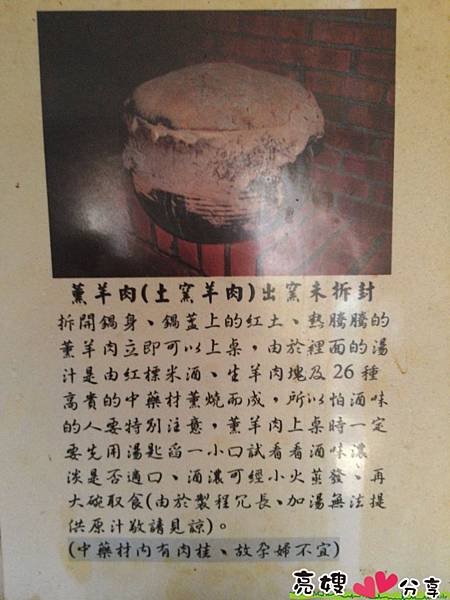 薰羊肉(土窯羊肉)出窯未拆封
拆開鍋身、鍋蓋上的紅土、熱騰騰的
薰羊肉立即可以上桌，由於裡面的湯
汁是由紅標米酒、生羊肉塊及26種
高貴的中藥材薰燒而成，所以怕酒味
的人要特別注意，薰羊肉上桌時一定
要先用湯匙舀一小口試看看酒味濃
淡是否適口、酒濃可經小火蒸發、再
大碗取食(由於製程冗長、加湯無法提
供原汁敬請見諒)。
(中藥材內有肉桂、故孕婦不宜)
亮嫂 分享